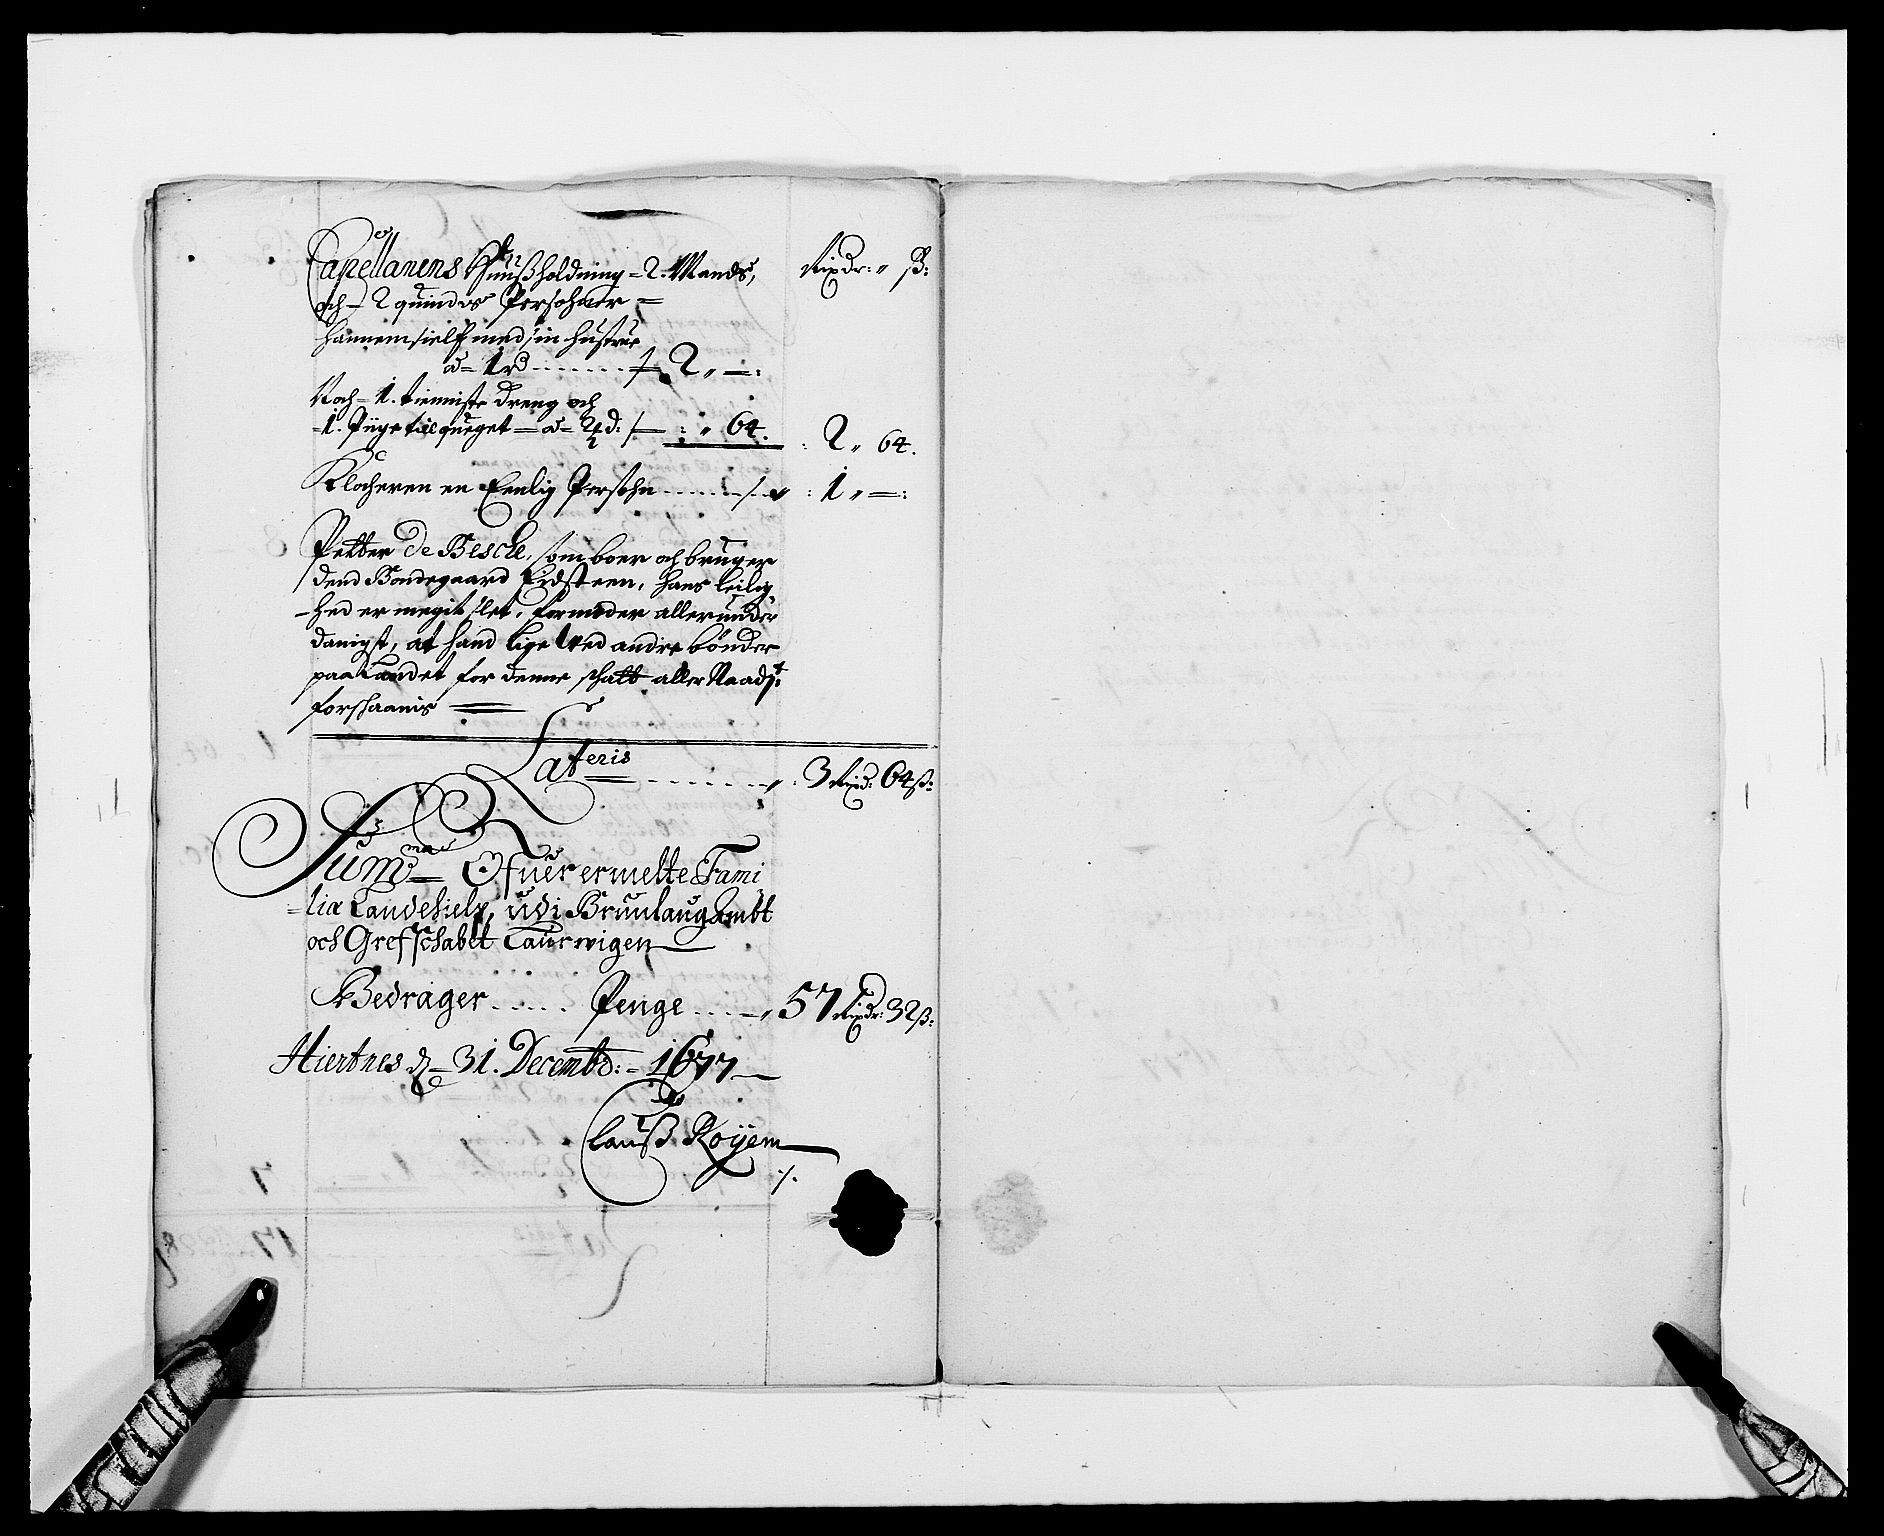 Capellanens Huußholdning = 2. Mands, Rixdr: „ ß:
och – 2 quindis Persohner =
hannem sielf med sin hustrue
a = 1 rd ...... ⁄. 2 „ – :
Noch = 1. tienniste dreng och
1. Piige till queget – a = 2 ⁄ – : „ 64. : 2 „ 64.
Klocheren en Eenlig Persohn ...... ⁄. „ : 1 „ – :
Petter de Besche, som boer och bruger
dend Bondegaard Eidsteen, hans leilig-
-hed er megit slet, formoder allerunder
danigst, at hand lige ved andre bønder
paa Landet for denne schatt aller Naadst:
forschaanis =
Lateris ...... „ : 3 Rixd: 64 ß:
Summa Ofuerermelte Fami
=lia Landehielp, udi Brunlaug Ambt
och Grefschabet Laurwigen
Bedrager ..... Penge .... „ 57 Rixdr: 32 ß:
Hiertnes d. 31. Decembr: = 1677
Clauß Røyem
⁄.